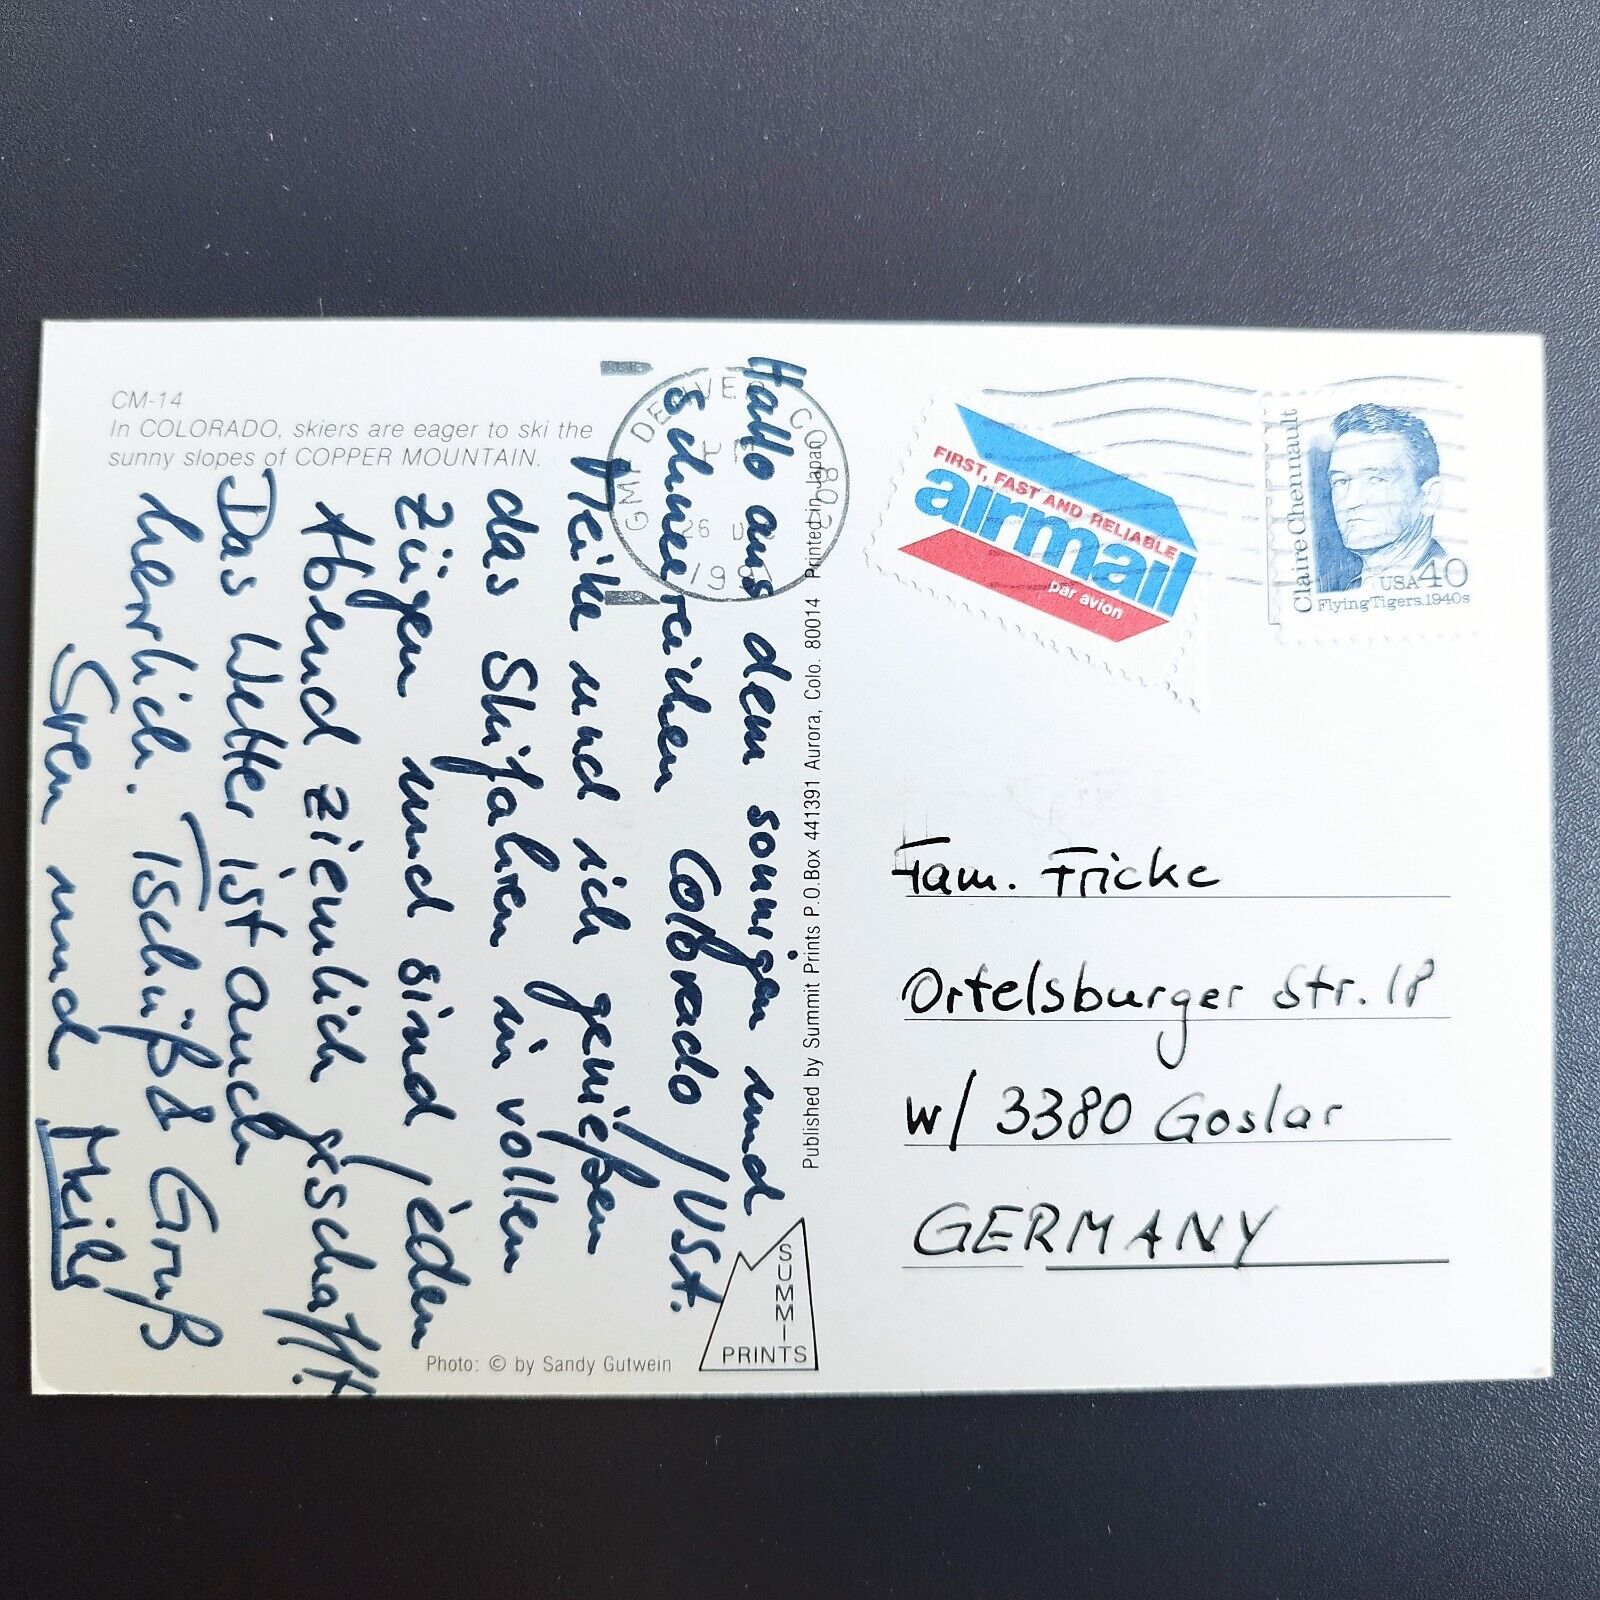 CM-14
In COLORADO, skiers are eager to ski the
sunny slopes of COPPER MOUNTAIN.
Hallo aus dem sonnigen und
schneereichen Colorado/USt.
Meike und ich genießen
das Skifahren in vollen
Zügen und sind jeden
Abend ziemlich geschafft.
Das Wetter ist auch
herrlich. Tschüß & Gruß
Sven und Meike
Photo: © by Sandy Gutwein
Published by Summit Prints P.O.Box 441391 Aurora, Colo. 80014 Printed in Japan
SUMMIT
PRINTS
DENVER CO 802
GMF
26
FIRST, FAST AND RELIABLE
airmail
par avion
Claire Chennault
USA 40
Flying Tigers, 1940s
Fam. Fricke
Ortelsburger Str. 18
W/ 3380 Goslar
GERMANY